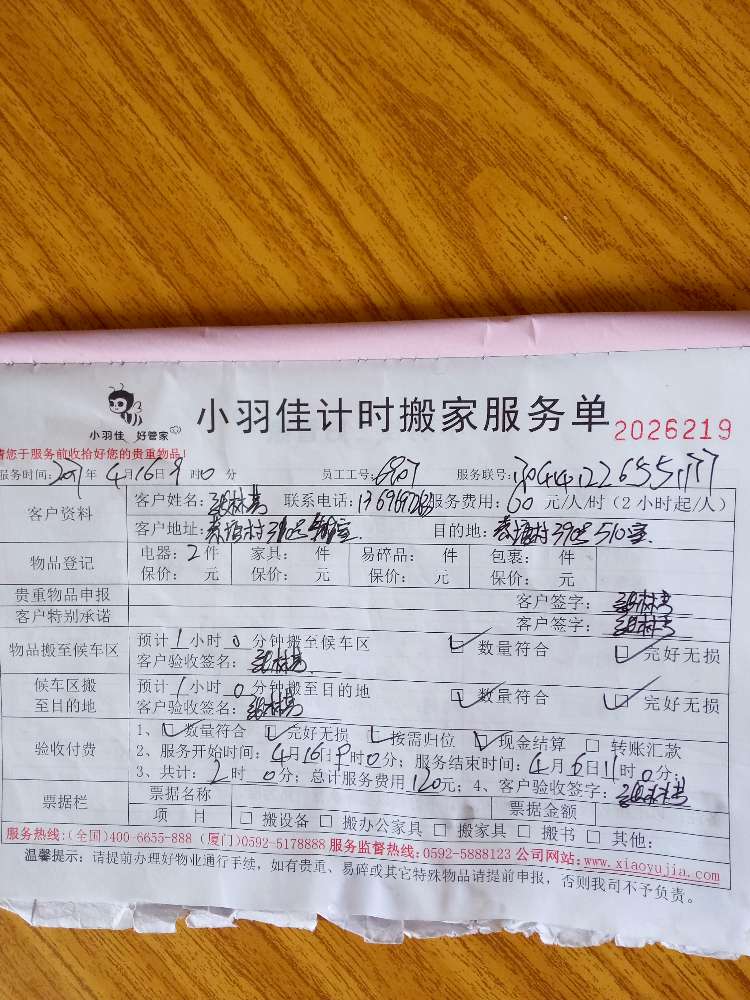 小羽佳 好管家
小羽佳计时搬家服务单 2026219
请您于服务前收拾好您的贵重物品!
服务时间: 年 4月16日9时0分 员工工号: 服务联号:
客户资料 客户姓名: 联系电话: 服务费用: 60 元/人/时(2小时起/人)
客户地址: 目的地: 村390号510室
物品登记 电器: 2件 家具: 件 易碎品: 件 包裹: 件
保价: 元 保价: 元 保价: 元 保价: 元
贵重物品申报 客户签字:
客户特别承诺 客户签字:
物品搬至候车区 预计1小时0分钟搬至候车区 ☑ 数量符合 ☑ 完好无损
客户验收签名:
候车区搬至目的地 预计1小时0分钟搬至目的地 ☑ 数量符合 ☑ 完好无损
客户验收签名:
验收付费 1、☑数量符合 ☑完好无损 ☑按需归位 ☑现金结算 □ 转账汇款
2、服务开始时间: 4月16日9时0分; 服务结束时间: 4月6日11时0分;
3、共计: 2时0分; 总计服务费用120元; 4、客户验收签字:
票据栏 票据名称 票据金额
项 目 □ 搬设备 □ 搬办公家具 □ 搬家具 □ 搬书 □ 其他:
服务热线:(全国)400-6655-888 (厦门)0592-5178888 服务监督热线:0592-5888123 公司网站:www.xiaoyujia.com
温馨提示: 请提前办理好物业通行手续, 如有贵重、易碎或其它特殊物品请提前申报, 否则我司不予负责。